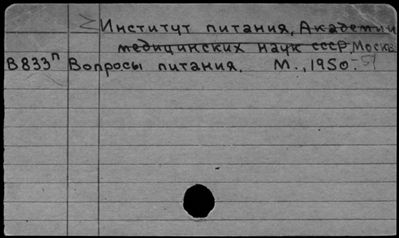 Институт питания, Академии
медицинских наук СССР, Москва
В833п Вопросы питания. М., 1950-51